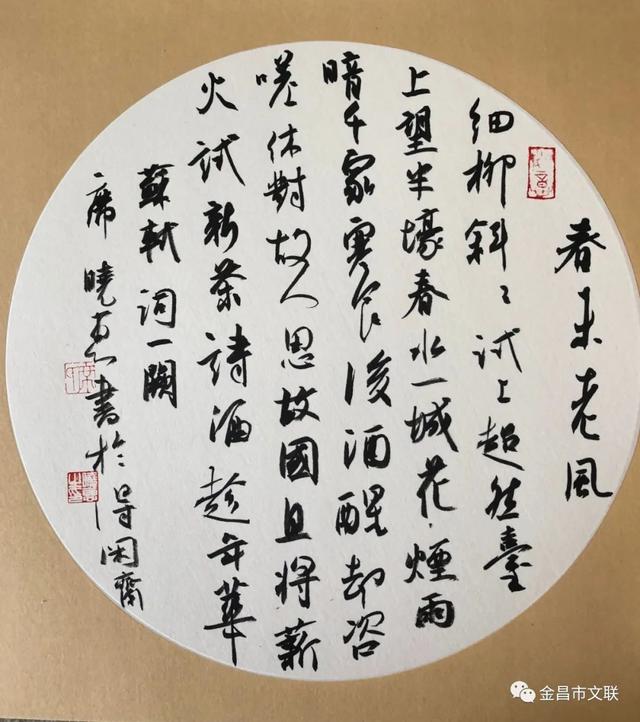 春未老風
細柳斜〻試上超然臺
上望半壕春水一城花煙雨
暗千家寒食後酒醒却咨
嗟休對故人思故國且將薪
火試新茶詩酒趁年華
蘇軾詞一闋
席曉書於得閑齋
金昌市文联